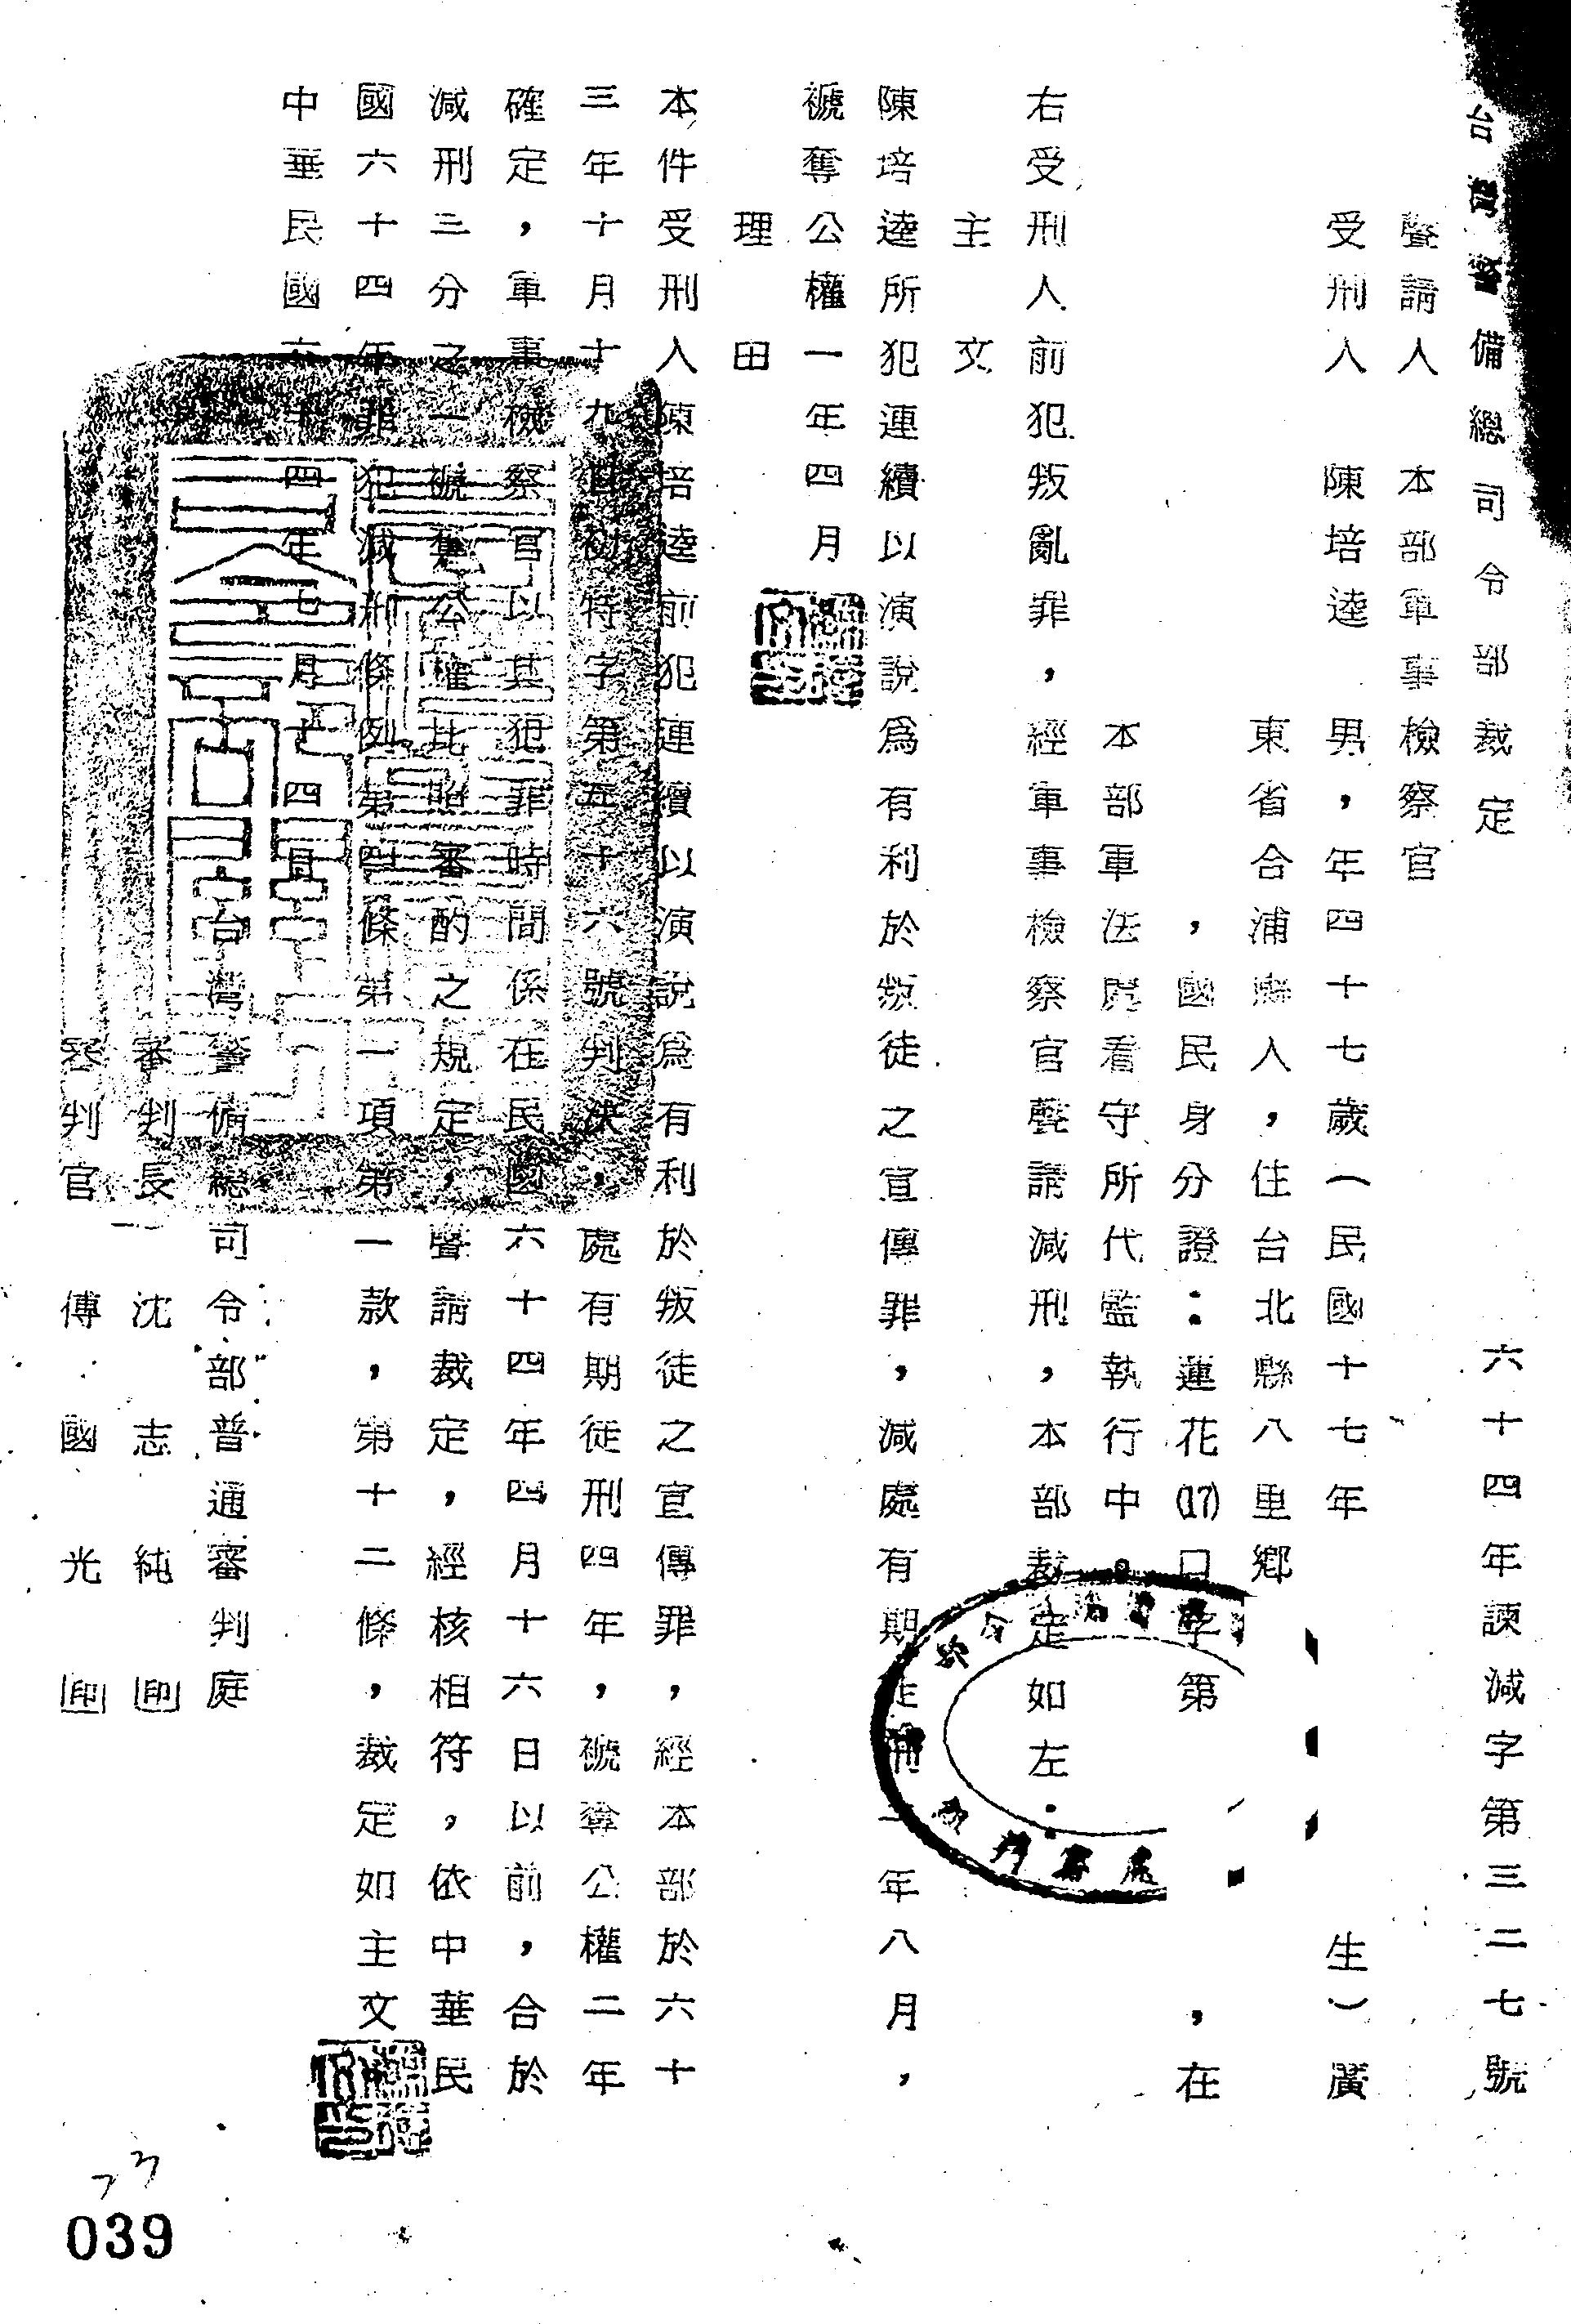 台灣警備總司令部裁定 六十四年諫減字第三二七號
聲請人 本部軍事檢察官
受刑人 陳培逵 男，年四十七歲（民國十七年 生）廣
東省合浦縣人，住台北縣八里鄉
，國民身分證：蓮花(17)口字第 ，在
本部軍法處看守所代監執行中。
右受刑人前犯叛亂罪，經軍事檢察官聲請減刑，本部裁定如左：
主文
陳培逵所犯連續以演說為有利於叛徒之宣傳罪，減處有期徒刑二年八月，
褫奪公權一年四月
理由
本件受刑人陳培逵前犯連續以演說為有利於叛徒之宣傳罪，經本部於六十
三年十月十九日初特字第五十六號判決，處有期徒刑四年，褫奪公權二年
確定，軍事檢察官以其犯罪時間係在民國六十四年四月十六日以前，合於
減刑三分之一褫奪公權比照審酌之規定，聲請裁定，經核相符。依中華民
國六十四年罪犯減刑條例第四條第一項第一款，第十二條，裁定如主文
中華民國六十四年七月十四日
台灣警備總司令部普通審判庭
審判長 沈志純 印
審判官 傅國光 印
039